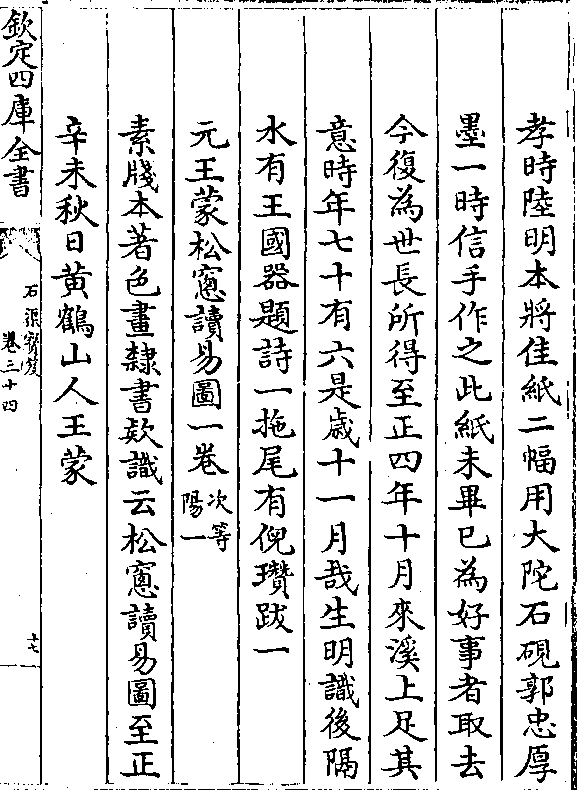 孝時陸明本將佳紙二幅用大陀石硯郭忠厚
墨一時信手作之此紙未畢已為好事者取去
今復為世長所得至正四年十月來溪上足其
意時年七十有六是歳十一月哉生明識後隔
水有王國器題詩一拖尾有倪瓚跋一
元王蒙松窻讀易圖一卷次等
陽一
素牋本著色畫隸書欵識云松窻讀易圖至正
辛未秋日黄鶴山人王蒙
欽定四庫全書
石渠寳笈
卷三十四
十七